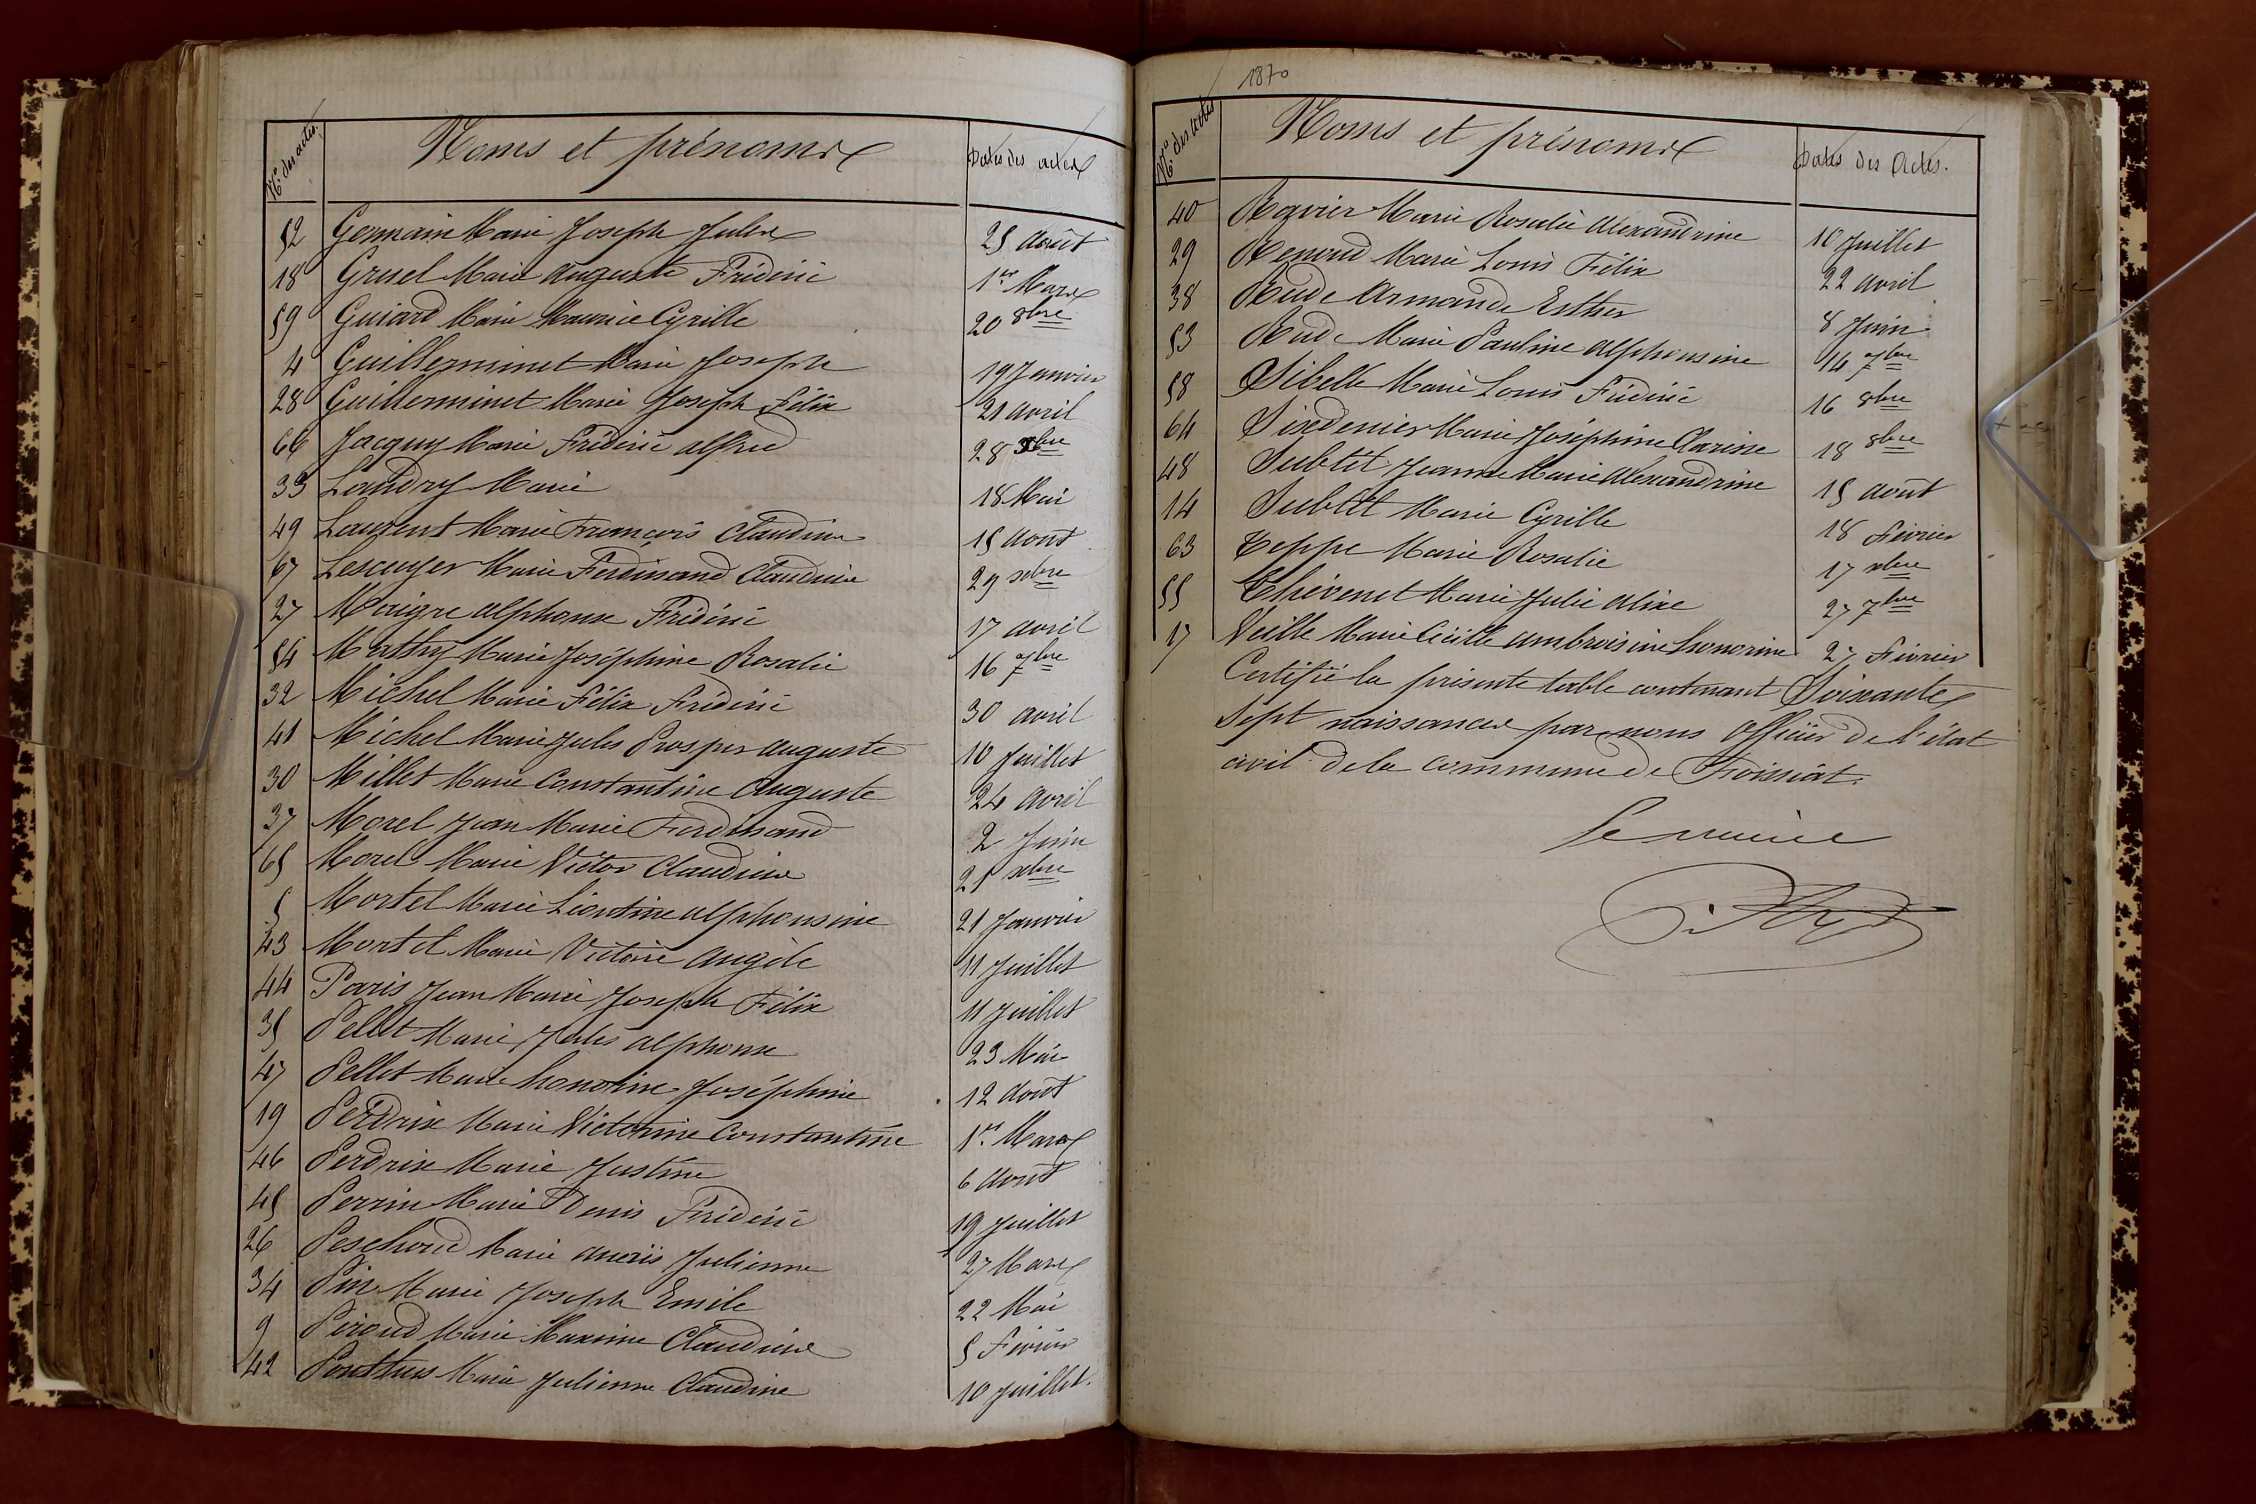 Nos des actes. Noms et prénoms Dates des actes
52 Germain Marie Joseph Jules 25 août
18 Grusel Marie Auguste Fréderic 1er Mars
59 Guiard Marie Maurice Cyrille 20 8bre
4 Guilleminet Marie Joseph 19 Janvier
28 Guilleminet Marie Joseph Félix 21 avril
66 Jacquy Marie Fréderic alfred 28 xbre
33 Landry Marie 18 Mai
49 Laurent Marie François Claudius 15 août
67 Lescuyer Marie Ferdinand Claudius 29 xbre
27 Maigre alphonse Fréderic 17 avril
54 Mathy Marie Joséphine Rosalie 16 7bre
32 Michel Marie Félix Fréderic 30 avril
41 Michel Marie Jules Prosper auguste 10 Juillet
30 Millet Marie Constantine Auguste 24 avril
37 Morel Jean Marie Ferdinand 2 Juin
65 Morel Marie Victor Claudius 25 xbre
5 Mortel Marie Léontine alphonsine 21 Janvier
43 Mortel Marie Victoire Angèle 11 Juillet
44 Paris Jean Marie Joseph Félix 11 Juillet
35 Pellet Marie Jules alphonse 23 Mai
47 Pellet Marie honorine Joséphine 12 août
19 Perdrix Marie Victorine Constantine 1er Mars
46 Perdrix Marie Justine 6 août
45 Perrin Marie Denis Fréderic 19 Juillet
26 Peschoud Marie anaïs Julienne 27 Mars
34 Pin Marie Joseph Emile 22 Mai
9 Piroud Marie Maxime Claudius 5 Février
42 Ponthus Marie Julienne Claudine 10 Juillet.
1870
Nos des actes Noms et prénoms Dates des Actes.
40 Ravier Marie Rosalie Alexandrine 10 Juillet
29 Renoud Marie Louis Félix 22 avril
38 Rude Armande Esther 8 Juin
53 Rude Marie Pauline alphonsine 14 7bre
58 Sibelle Marie Louis Fréderic 16 8bre
64 Sixdenier Marie Joséphine Clarisse 18 8bre
48 Subtil Jeanne Marie Alexandrine 15 août
14 Subtil Marie Cyrille 18 Février
63 Teppe Marie Rosalie 17 xbre
55 Thévenet Marie Julie alixe 27 7bre
17 Veille Marie Cécille ambroisine honorine 27 Février
Certifié la présente table contenant Soixante
Sept naissances par nous Officier de l'état
civil de la commune de Foissiat.
Le maire